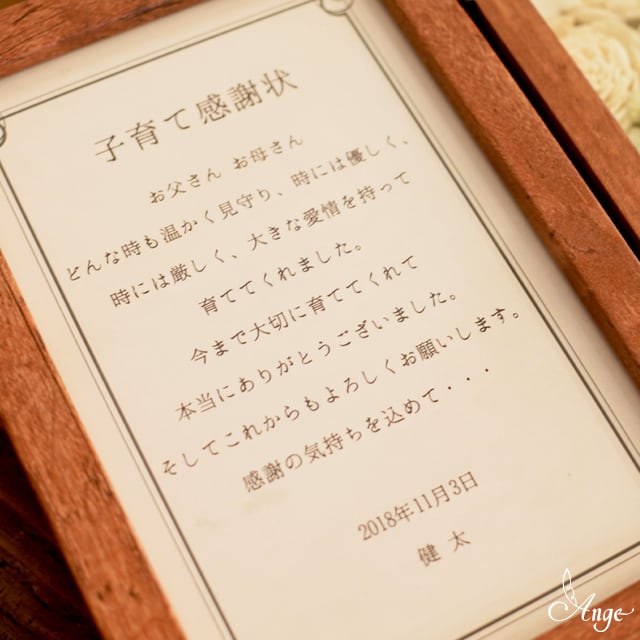 子育て感謝状
お父さん お母さん
どんな時も温かく見守り、時には優しく、
時には厳しく、大きな愛情を持って
育ててくれました。
今まで大切に育ててくれて
本当にありがとうございました。
そしてこれからもよろしくお願いします。
感謝の気持ちを込めて・・・
2018年11月3日
健 太
Ange